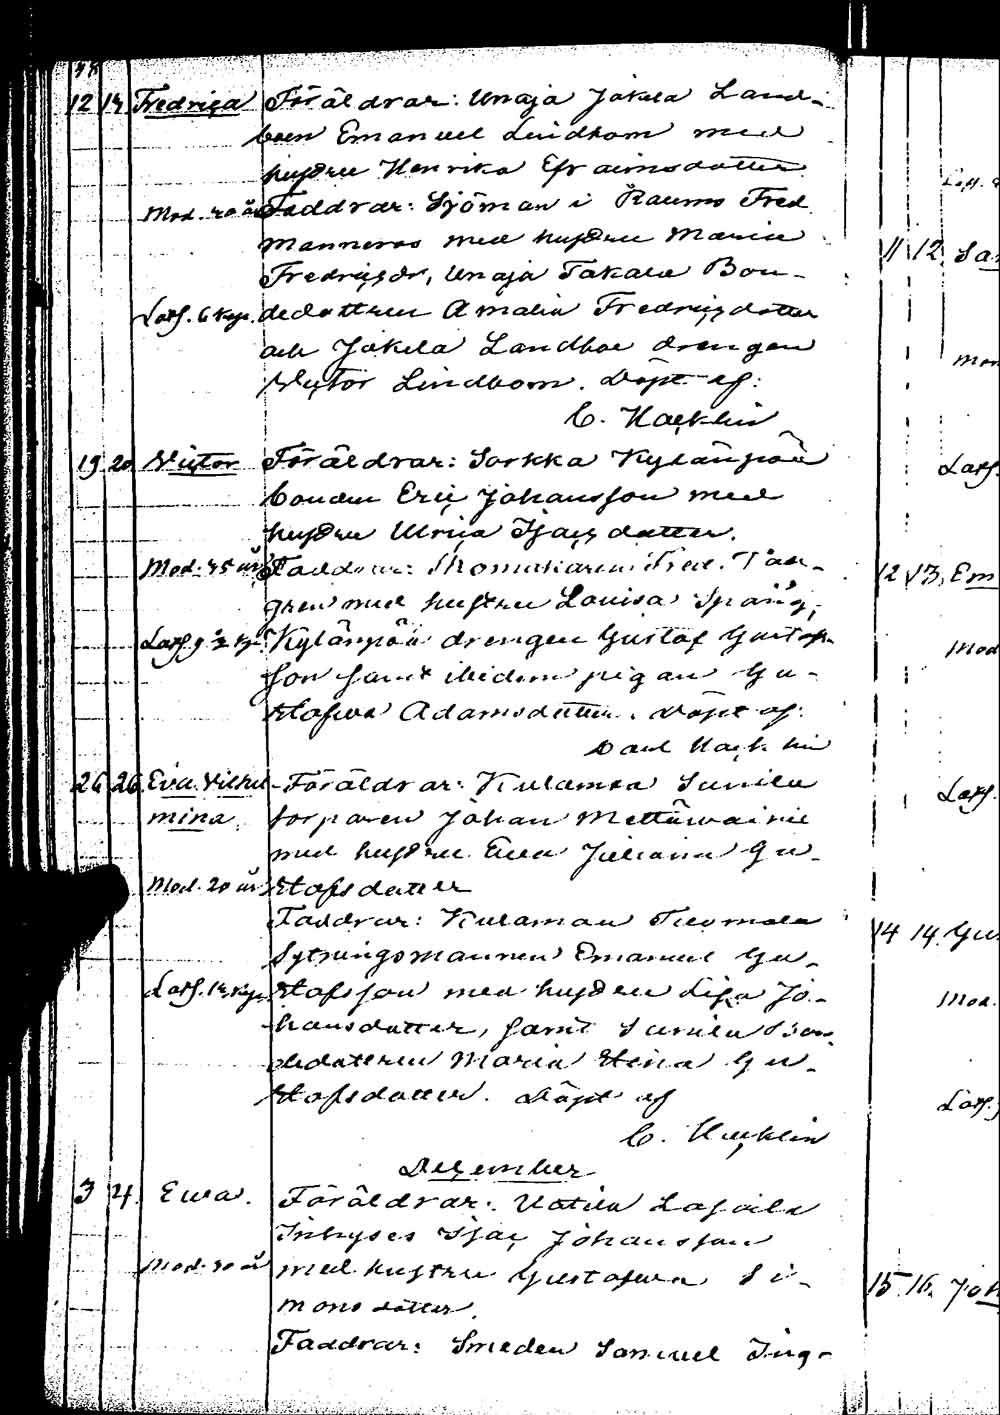 12 14 Fredrica Föräldrar: Unaja Jakela Land-
boen Emanuel Lindbom med
hustru Henrika Efraimsdotter
Mod. 40 år Faddrar: Sjöman i Raumo Fred.
Manneros med hustru Maria
Fredricsdr, Unaja Takala Bon-
Lösf. 6 kop. dedottren Amalia Fredricsdotter
och Jakela Landboe drengen
Victor Lindbom. Döpt af:
C. Hacklin
19 20 Victor Föräldrar: Sorkka Kylänpää
bonden Eric Johansson med
hustru Ulrica Isacsdotter.
Mod. 45 år Faddrar: Fred. Tån-
gren med hustru Lovisa Spång,
Kylänpää drengen Gustaf Gustafs-
son samt ibidem pigan Gu-
stafva Adamsdotter. Döpt af:
Hacklin
26 26 Eva Vilhel- Föräldrar: Kulamaa Sunila
mina. torparen Johan Mettäwainie
med hustru Eva Juliana Gu-
Mod. 20 år stafsdotter
Faddrar: Kulamaa Tuomola
Sytningsmannen Emanuel Gu-
stafsson med hustru Lisa Jo-
hansdotter, samt Sunila Bon-
dedottren Maria Stina Gu-
stafsdotter. Döpt af
C. Hacklin
December
3 4. Ewa. Föräldrar: Uotila
Inhyses Isac Johansson
Mod. 30 år med hustru Gustafva Si-
monsdotter.
Faddrar: Smeden Samuel Ing-
11 12
12 13. Em
Mod
14 14. Gu
Mod.
15. 16. Joh